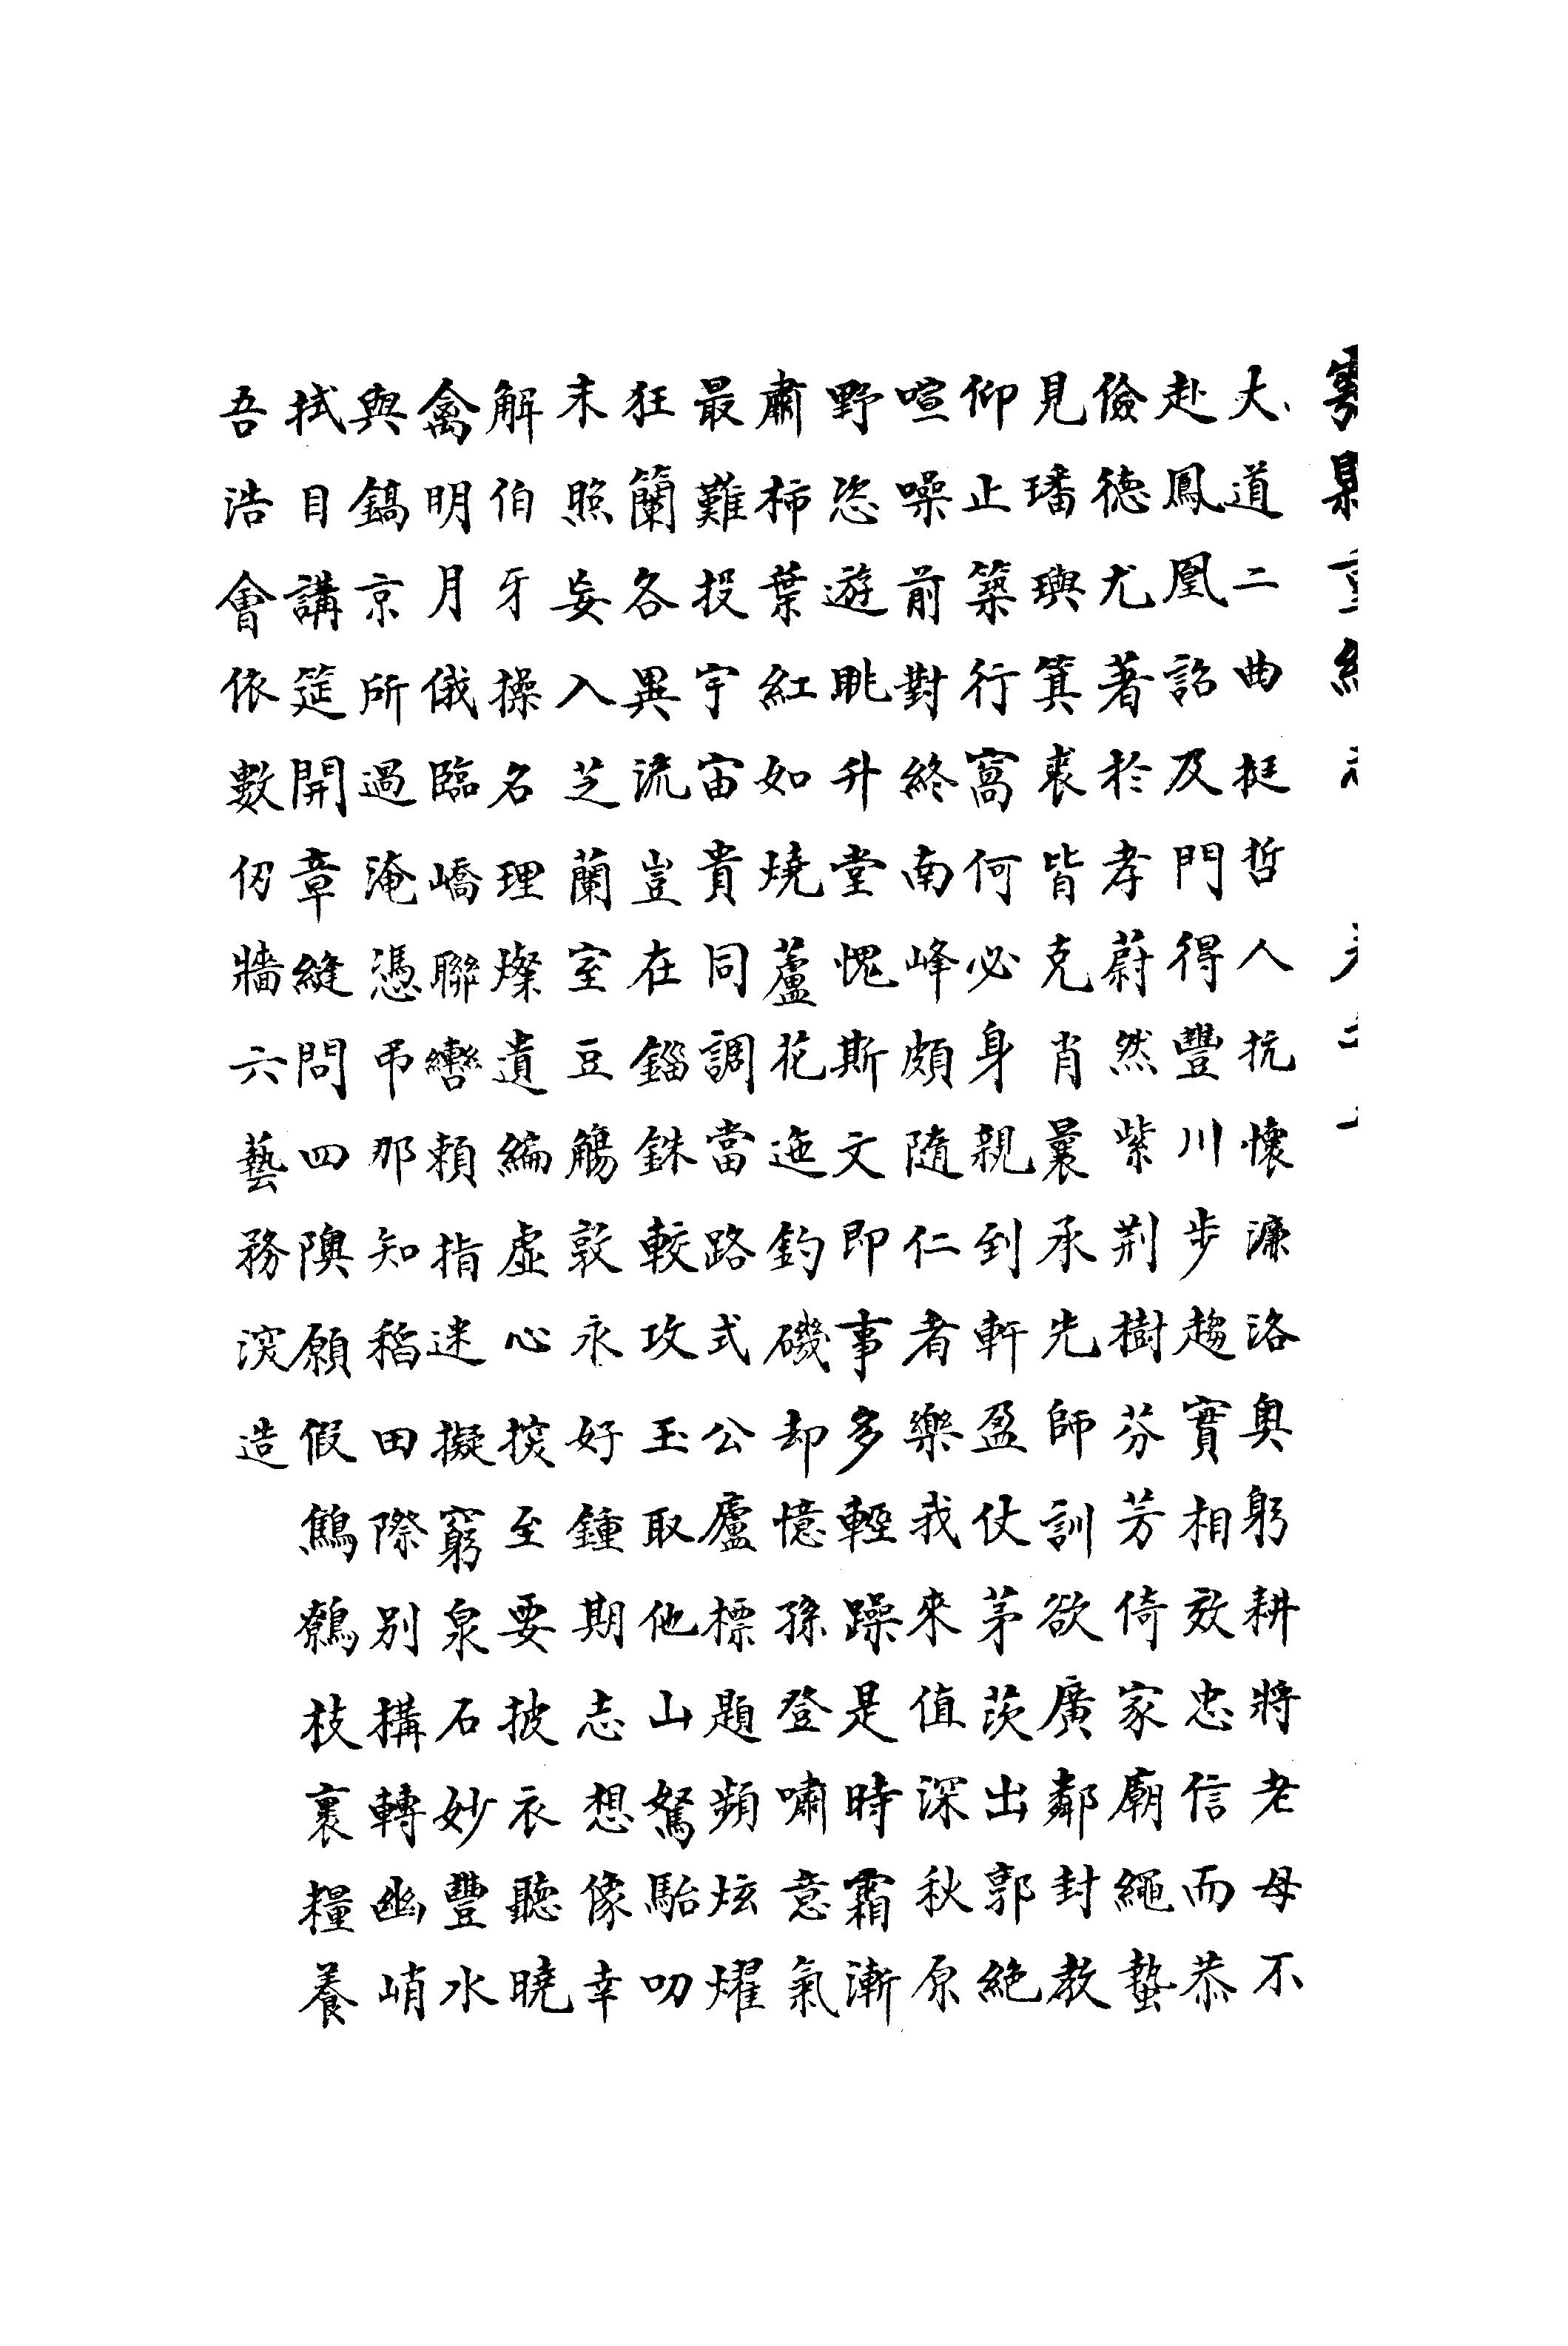 大道二曲挺哲人抗懷濂洛奧躬耕將老母不
赴鳳凰詔及門得豐川步趨實相效忠信而恭
儉德尤著於孝蔚然紫荆樹芬芳倚家廟繩蟄
見璠璵箕裘皆克肖曩承先師訓欲廣鄰封教
仰止築行窩何必身親到軒盈仗茅茨出郭絶
喧噪前對終南峰頗隨仁者樂我來值深秋原
野恣遊眺升堂愧斯文即事多輕躁是時霜漸
肅柿葉紅如燒蘆花迤釣磯却憶孫登嘯意氣
最難投宇宙貴同調當路式公廬標題頻炫燿
狂簡各異流豈在錙銖較攻玉取他山駑駘叨
末照妄入芝蘭室豆觴敦永好鍾期志想像幸
解伯牙操名理燦遺編虛心挨至要披衣聽曉
禽明月俄臨嶠聯轡賴指迷擬窮泉石妙豐水
與鎬京所過淹憑吊那知稻田際別構轉幽峭
拭目講筵開章縫問四隩願假鷦鷯枝裹糧養
吾浩會依數仞牆六藝務深造